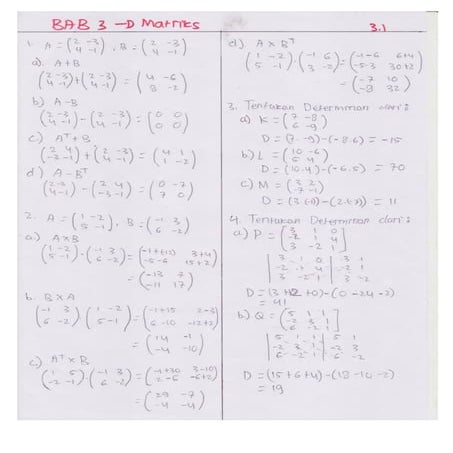 BAB 3 → D Matriks
3.1
1. A = (2 -3 / 4 -1), B = (2 -3 / 4 -1)
a). A+B
(2 -3 / 4 -1) + (2 -3 / 4 -1) = (4 -6 / 8 -2)
b) A-B
(2 -3 / 4 -1) - (2 -3 / 4 -1) = (0 0 / 0 0)
c) Aᵀ+B
(2 4 / -3 -1) + (2 -3 / 4 -1) = (4 1 / 1 -2)
d) A-Bᵀ
(2 -3 / 4 -1) - (2 4 / -3 -1) = (0 -7 / 7 0)
2. A = (1 -2 / 5 -1), B = (-1 3 / 6 -2)
a.) A×B
(1 -2 / 5 -1) · (-1 3 / 6 -2) = (-1+(-12) 3+4 / -5-6 15+2)
= (-13 7 / -11 17)
b. B×A
(-1 3 / 6 -2) · (1 -2 / 5 -1) = (-1+15 2-3 / 6-10 -12+2)
= (14 -1 / -4 -10)
c) Aᵀ×B
(1 5 / -2 -1) · (-1 3 / 6 -2) = (-1+30 3-10 / 2-6 -6+2)
= (29 -7 / -4 -4)
d) A×Bᵀ
(1 -2 / 5 -1) · (-1 6 / 3 -2) = (-1-6 6+4 / -5-3 30+2)
= (-7 10 / -8 32)
3. Tentukan Determinan dari :
a) K = (7 -8 / 6 -9)
D = (7·-9) - (-8·6) = -15
b) L = (10 -6 / 5 4)
D = (10·4) - (-6·5) = 70
c) M = (3 2 / -7 -1)
D = (3·-1) - (2·-7) = 11
4. Tentukan Determinan dari :
a) P = [3 1 0 / -2 1 4 / 3 -2 1]
|3 1 0 / -2 1 4 / 3 -2 1| 3 1 / -2 1 / 3 -2
D = (3+12+0) - (0-24-2)
= 41
b) Q = [5 1 1 / -2 3 1 / 6 -2 1]
|5 1 1 / -2 3 1 / 6 -2 1| 5 1 / -2 3 / 6 -2
D = (15+6+4) - (18-10-2)
= 19